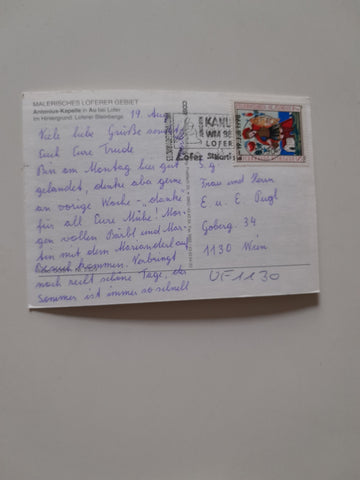 MALERISCHES LOFERER GEBIET
Antonius-Kapelle in Au bei Lofer
im Hintergrund: Loferer Steinberge
19. Aug.
Viele liebe Grüße sendet
Euch Eure Trude
Bin am Montag hier gut
gelandet, denke aber gerne
an vorige Woche - danke
für all Eure Mühe! Mor-
gen wollen Bärbl und Mar-
tin mit dem Marianderl auf
Besuch kommen. Verbringt
noch recht schöne Tage, der
Sommer ist immer so schnell
KANU
WM 98
LOFER
Lofer
S. g.
Frau und Herrn
E. u. E. Pugl
Goberg. 34
1130 Wien
UF1130